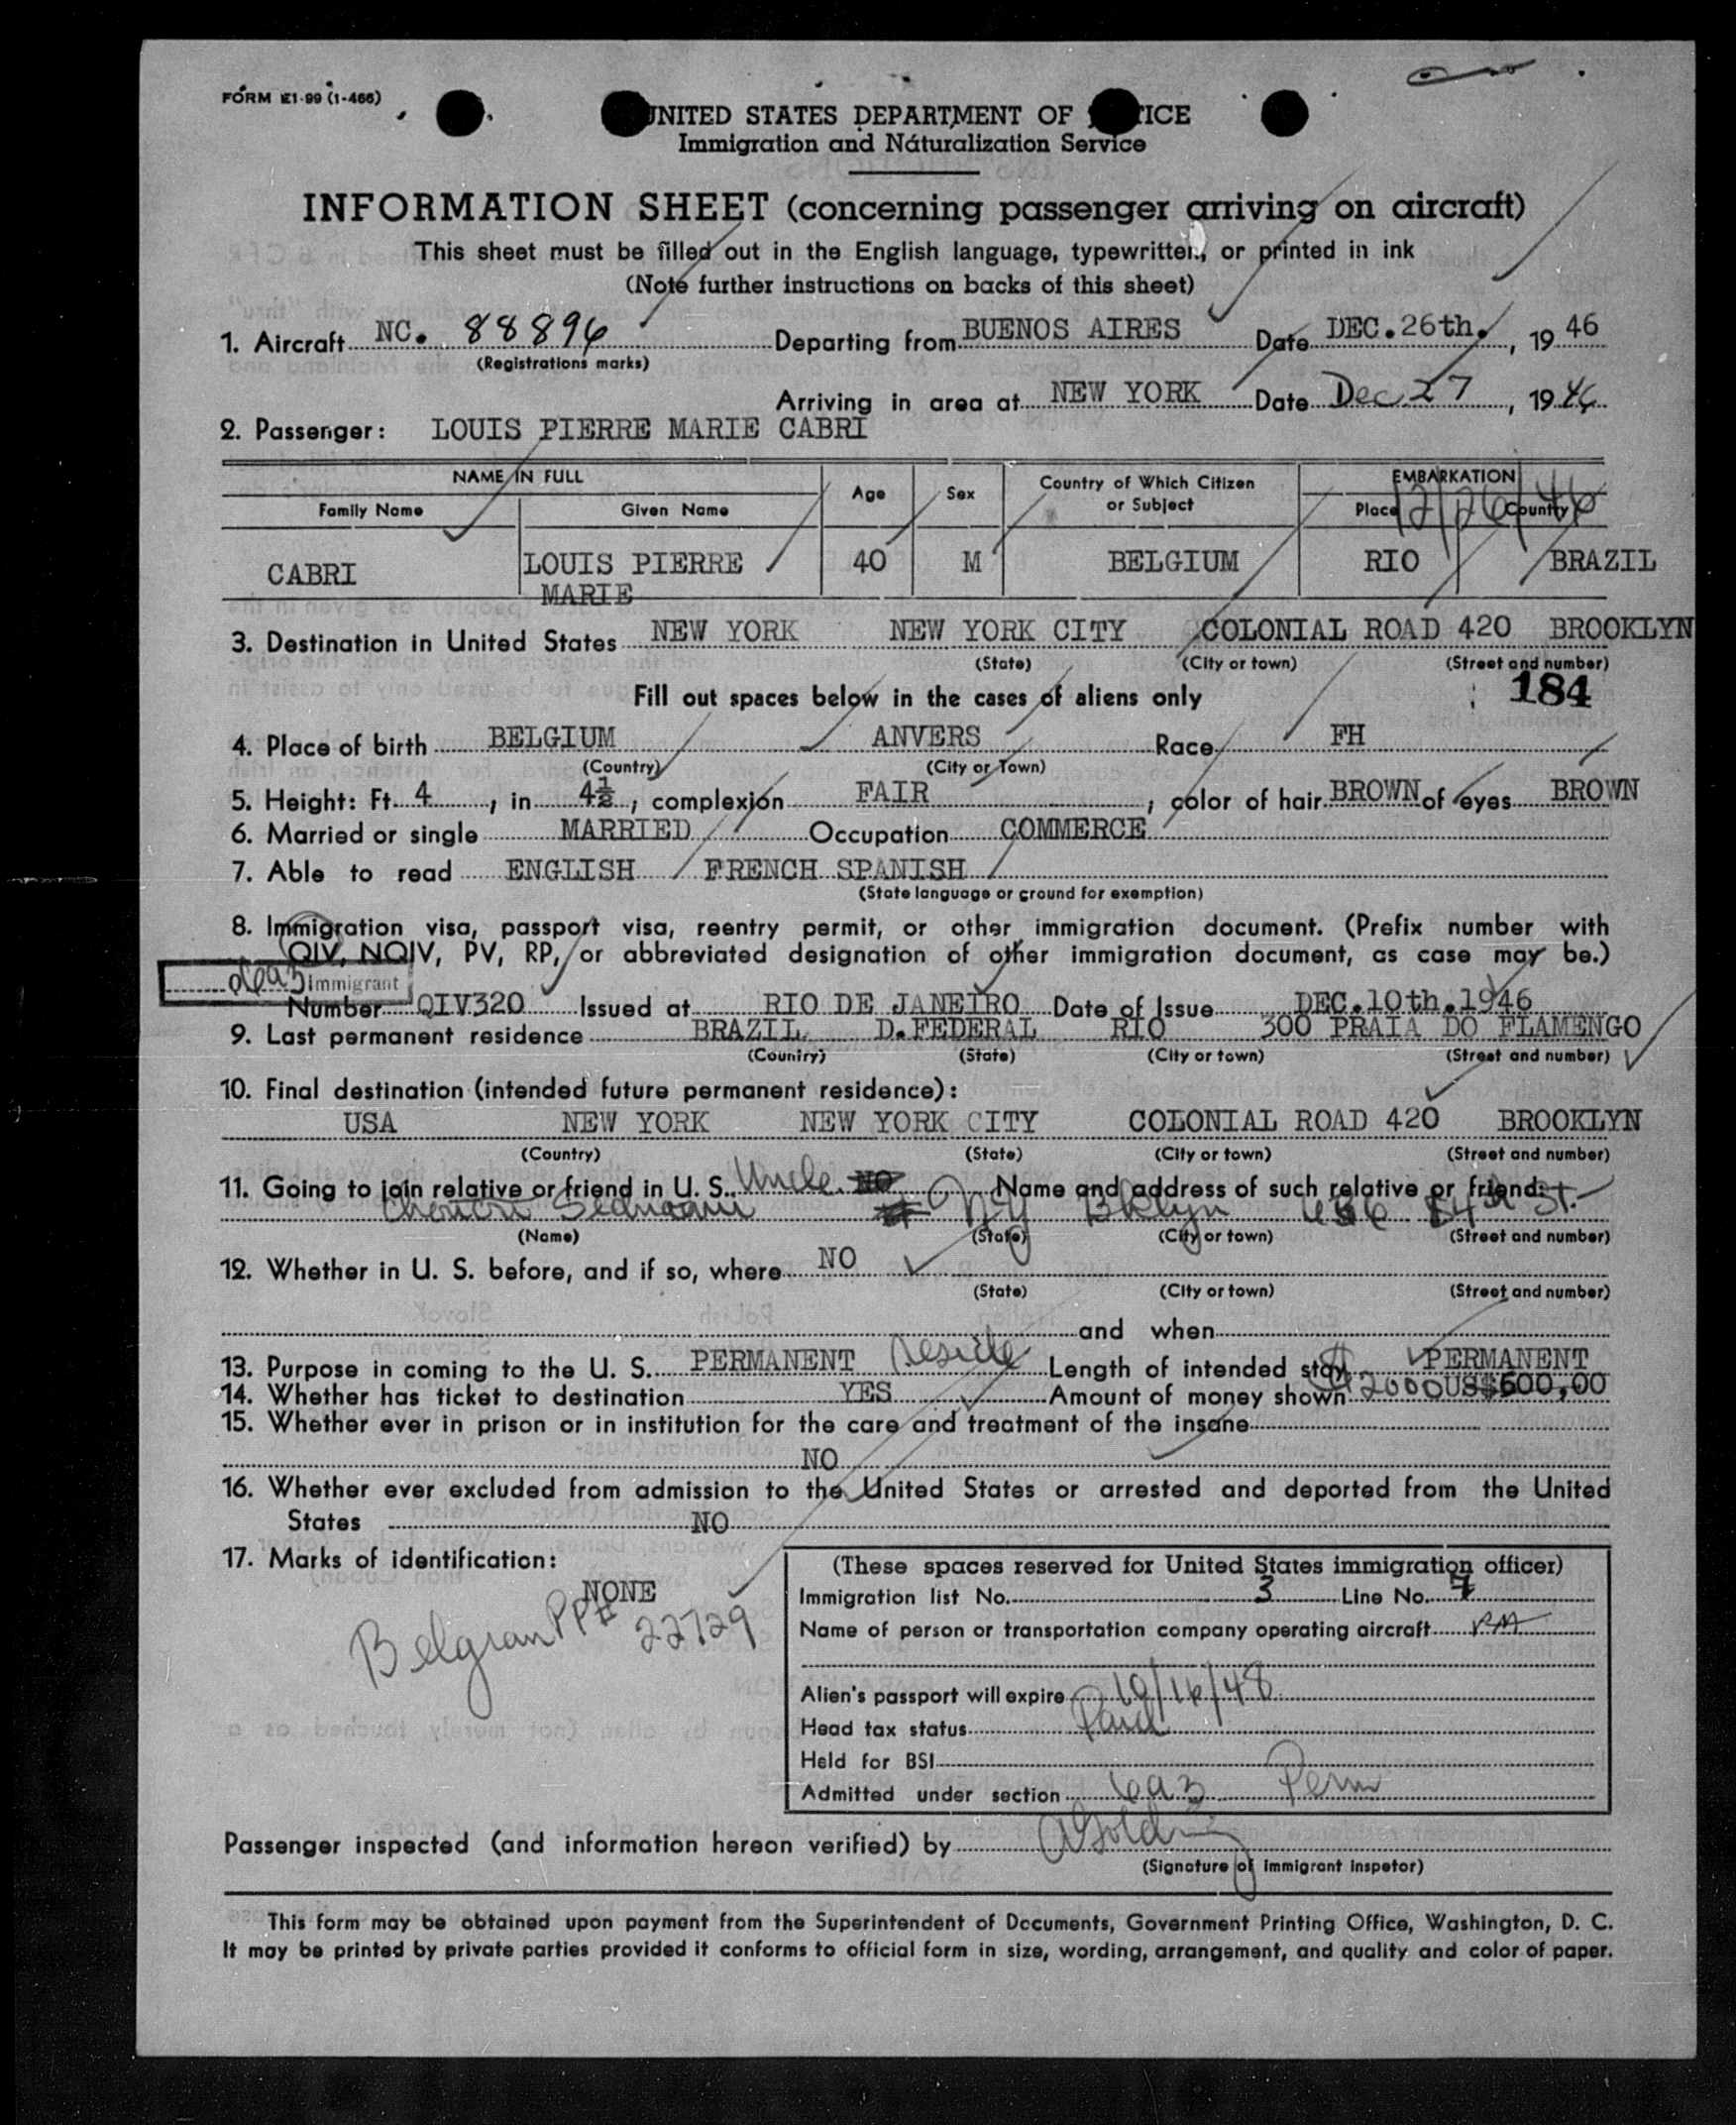 FORM I-99 (1-466)
UNITED STATES DEPARTMENT OF TICE
Immigration and Naturalization Service
INFORMATION SHEET (concerning passenger arriving on aircraft)
This sheet must be filled out in the English language, typewritten, or printed in ink
(Note further instructions on backs of this sheet)
1. Aircraft NC. 88896 Departing from BUENOS AIRES Date DEC.26th. , 19 46
(Registrations marks)
Arriving in area at NEW YORK Date Dec 27 , 19 46
2. Passenger: LOUIS PIERRE MARIE CABRI
NAME IN FULL Age Sex Country of Which Citizen or Subject EMBARKATION
Family Name Given Name Place Country 12/26/46
CABRI LOUIS PIERRE 40 M BELGIUM RIO BRAZIL
MARIE
3. Destination in United States NEW YORK NEW YORK CITY COLONIAL ROAD 420 BROOKLYN
(State) (City or town) (Street and number)
Fill out spaces below in the cases of aliens only 184
4. Place of birth BELGIUM ANVERS Race FH
(Country) (City or Town)
5. Height: Ft. 4 , in 4½ , complexion FAIR , color of hair BROWN of eyes BROWN
6. Married or single MARRIED Occupation COMMERCE
7. Able to read ENGLISH FRENCH SPANISH
(State language or ground for exemption)
8. Immigration visa, passport visa, reentry permit, or other immigration document. (Prefix number with
QIV, NQIV, PV, RP, or abbreviated designation of other immigration document, as case may be.)
6a3 Immigrant
Number QIV320 Issued at RIO DE JANEIRO Date of Issue DEC.10th.1946
9. Last permanent residence BRAZIL D.FEDERAL RIO 300 PRAIA DO FLAMENGO
(Country) (State) (City or town) (Street and number)
10. Final destination (intended future permanent residence):
USA NEW YORK NEW YORK CITY COLONIAL ROAD 420 BROOKLYN
(Country) (State) (City or town) (Street and number)
11. Going to join relative or friend in U. S. Uncle NO Name and address of such relative or friend:
NY Bklyn 84th St.
(Name) (State) (City or town) (Street and number)
12. Whether in U. S. before, and if so, where NO
(State) (City or town) (Street and number)
and when
13. Purpose in coming to the U. S. PERMANENT Reside Length of intended stay PERMANENT
14. Whether has ticket to destination YES Amount of money shown $2000 US$600,00
15. Whether ever in prison or in institution for the care and treatment of the insane
NO
16. Whether ever excluded from admission to the United States or arrested and deported from the United
States NO
17. Marks of identification:
NONE
Belgian PP# 22729
(These spaces reserved for United States immigration officer)
Immigration list No. 3 Line No. 7
Name of person or transportation company operating aircraft
Alien's passport will expire 10/16/48
Head tax status Paid
Held for BSI
Admitted under section 6a3 Perm
Passenger inspected (and information hereon verified) by
(Signature of Immigrant Inspetor)
This form may be obtained upon payment from the Superintendent of Documents, Government Printing Office, Washington, D. C.
It may be printed by private parties provided it conforms to official form in size, wording, arrangement, and quality and color of paper.